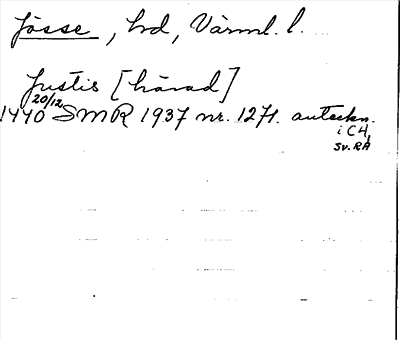 Jösse, hrd, Värml. l.
Justis [härad]
1440 20/12 SMR 1937 nr. 1271. anteckn.
i C4,
Sv. RA